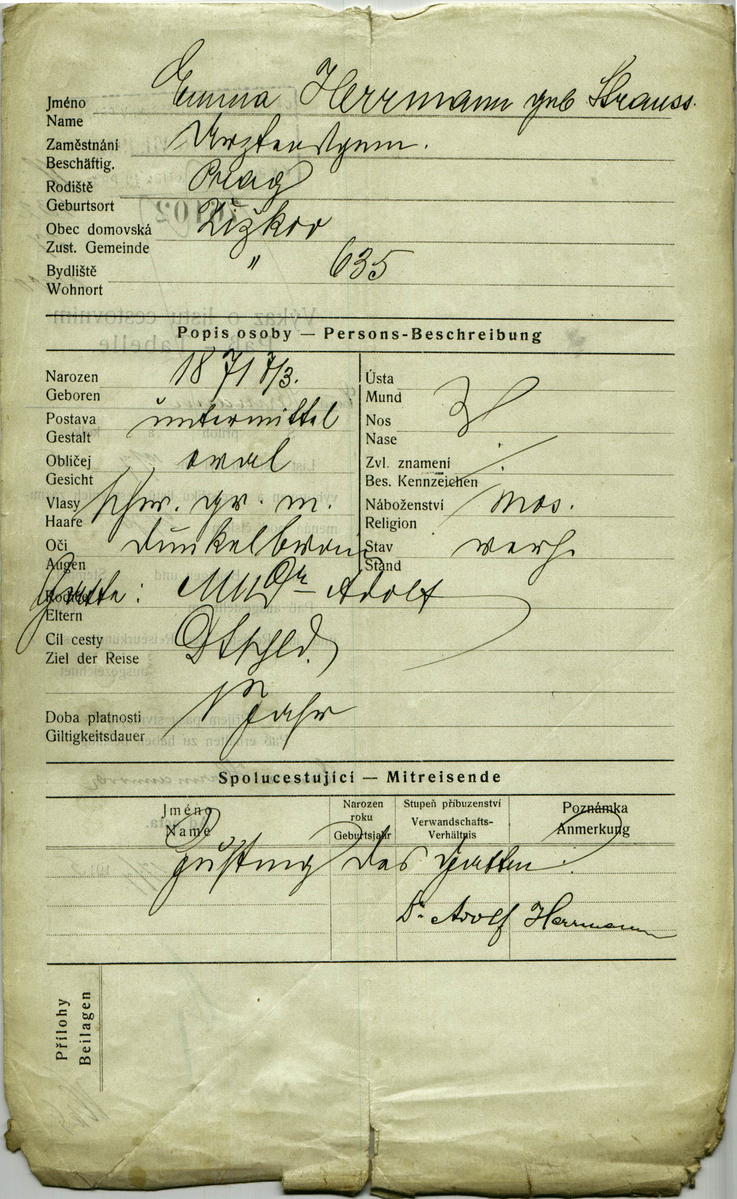 Jméno Name Emma Herrmann geb Strauss.
Zaměstnání Beschäftig. Arztensgem.
Rodiště Geburtsort Prag
Obec domovská Zust. Gemeinde Žižkov
Bydliště Wohnort " 635
Popis osoby — Persons-Beschreibung
Narozen Geboren 1871 7/3.
Postava Gestalt untermittel
Obličej Gesicht oval
Vlasy Haare schw. gr. m.
Oči Augen dunkelbraun
Ústa Mund
Nos Nase
Zvl. znamení Bes. Kennzeichen
Náboženství Religion mos.
Stav Stand verh.
Eltern Gatte: MUDr Adolf
Cíl cesty Ziel der Reise Dtschld.
Doba platnosti Giltigkeitsdauer 1 Jahr
Spolucestující — Mitreisende
Jméno Name
Narozen roku Geburtsjahr
Stupeň příbuzenství Verwandschafts-Verhältnis
Poznámka Anmerkung
Zustimg des Gatten:
Dr Adolf Herrmann
Přílohy Beilagen